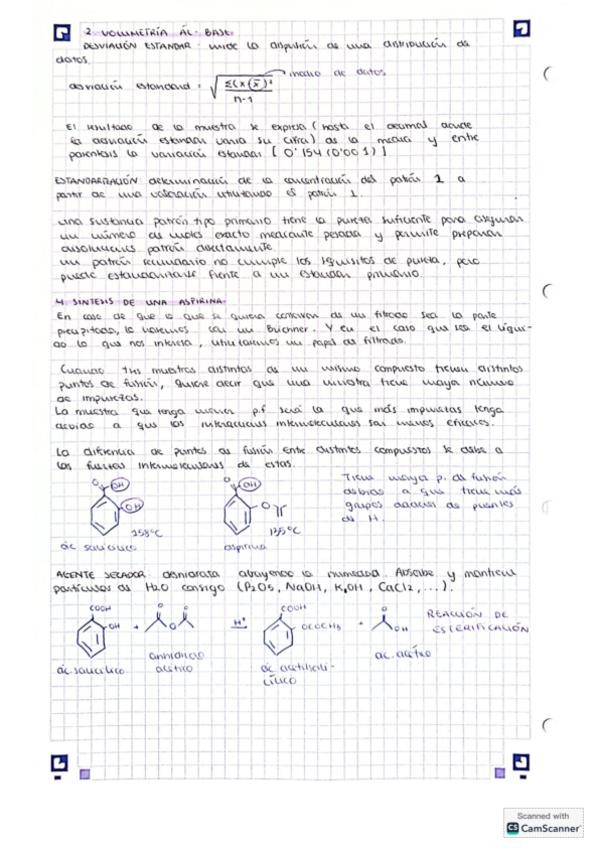 2. VOLUMETRÍA ÁC-BASE
DESVIACIÓN ESTANDAR: mide la dispersión de una distribución de
datos.
desviación estandard = √ Σ(x-(x̄))² / n-1 → media de datos
El resultado de la muestra se expresa (hasta el decimal donde
la desviación estandar varia su cifra) de la media y entre
parentesis la variación estandar [0'154 (0'001)]
ESTANDARIZACIÓN determinación de la concentración del patrón 2 a
partir de una valoración utilizando el patrón 1.
una sustancia patrón tipo primario tiene la pureza suficiente para asegurar
un número de moles exacto mediante pesada y permite preparar
disoluciones patrón directamente.
un patrón secundario no cumple los requisitos de pureza, pero
puede estandarizarse frente a un estandar primario.
4. SINTESIS DE UNA ASPIRINA.
En caso de que lo que se quiera conservar de un filtrado sea la parte
precipitada, lo haremos con un Büchner. Y en el caso que sea el líqui-
do lo que nos interesa, utilizamos un papel de filtrado.
Cuando tres muestras distintas de un mismo compuesto tienen distintos
puntos de fusión, quiere decir que una muestra tiene mayor número
de impurezas.
La muestra que tenga menor p.f será la que más impurezas tenga
debido a que las interacciones intermoleculares son menos eficaces.
La diferencia de puntos de fusión entre distintos compuestos se debe a
las fuerzas intermoleculares de estas.
O OH
OH
158ºC
ác salicílico
O OH
O
135ºC
aspirina
Tiene mayor p. de fusión
debido a que tiene más
grupos dadores de puentes
de H.
AGENTE SECADOR: deshidrata atrayendo la humedad. Absorbe y mantiene
partículas de H2O consigo (P2O5, NaOH, KOH, CaCl2, ...).
COOH
OH
+
O O
O
H+
COOH
OCOCH3
+
O
OH
REACCIÓN DE
ESTERIFICACIÓN
ác. salicílico
anhídrido
acético
ác acetilsali-
cílico
ac. acético
Scanned with
CS CamScanner